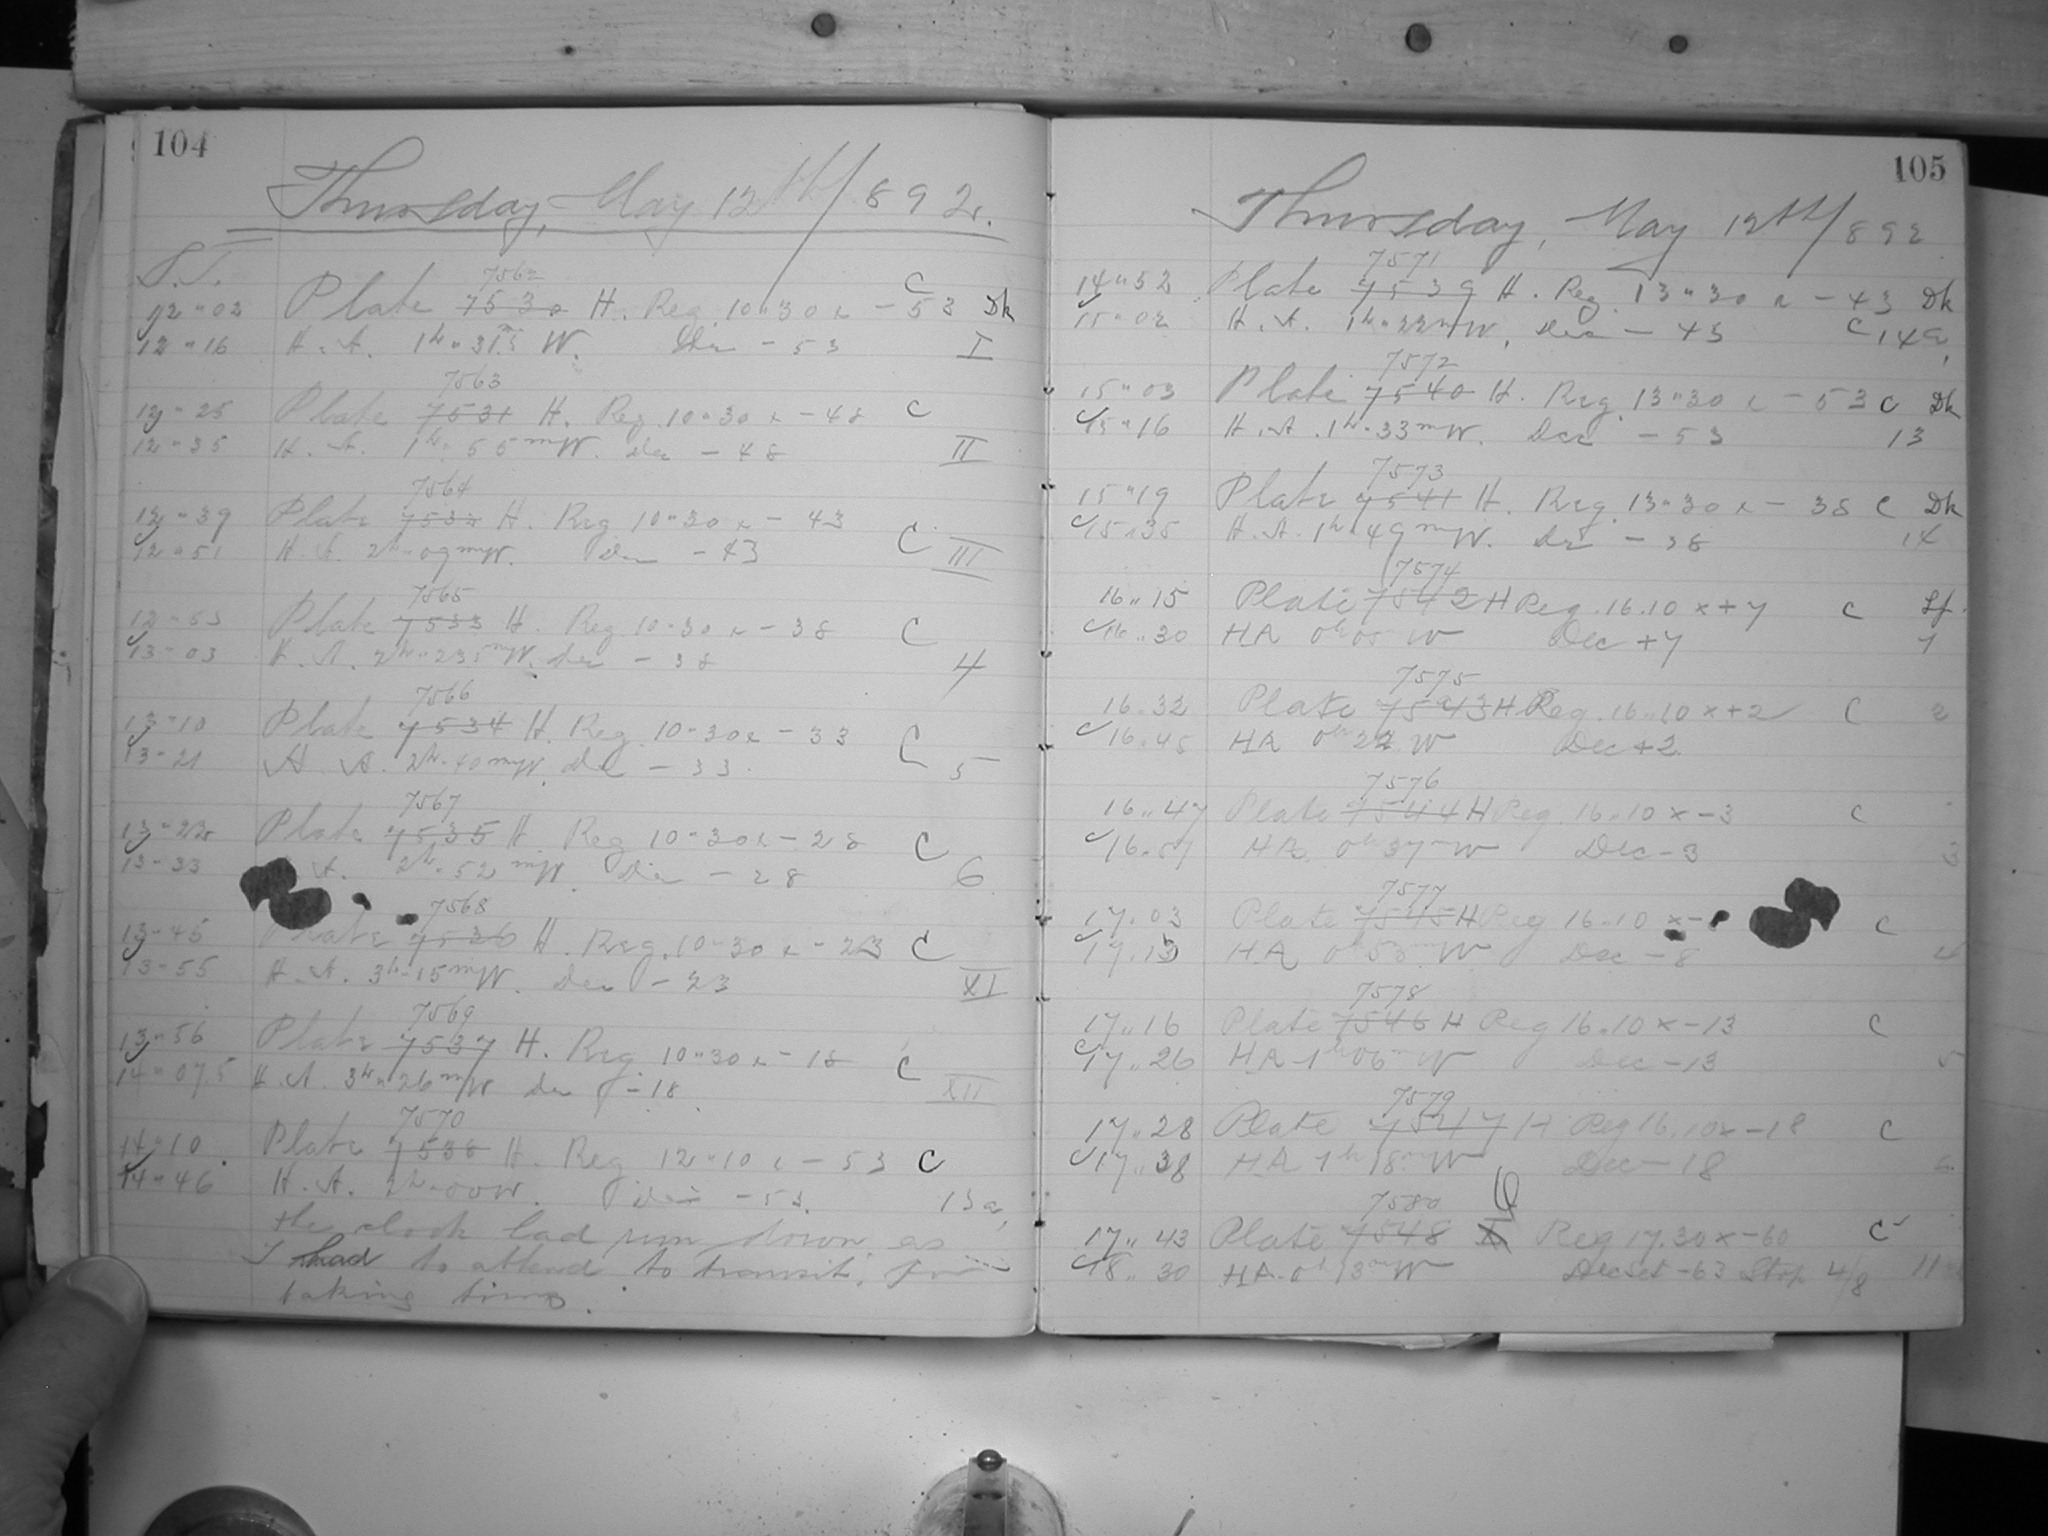 104
Thursday, May 12th 1892.
S.T.
7562
12-02 Plate 7530 H. Reg. 10-30 x -53 C Dk
12-16 H.A. 1h-31.5m W. Dec -53 I
7563
12-25 Plate 7531 H. Reg 10-30 x -48 C
12-35 H.A. 1h-55m W. Dec -48 II
7564
12-39 Plate 7532 H. Reg 10-30 x -43 C
12-51 H.A. 2h-09m W. Dec -43 III
7565
12-53 Plate 7533 H. Reg 10-30 x -38 C
13-03 H.A. 2h-23.5m W. Dec -38 4
7566
13-10 Plate 7534 H. Reg 10-30 x -33 C
13-21 H.A. 2h-40m W. Dec -33. 5
7567
13-22 Plate 7535 H. Reg 10-30 x -28 C
13-33 A. 2h-52m W. Dec -28 6
7568
13-45 Plate 7536 H. Reg. 10-30 x -23 C
13-55 H.A. 3h-15m W. Dec -23 XI
7569
13-56 Plate 7537 H. Reg. 10-30 x -18 C
14-07.5 H.A. 3h-26m W Dec -18 XII
7570
14-10 Plate 7538 H. Reg 12-10 x -53 C
14-46 H.A. 2h-00 W. Dec -53. 13a,
the clock had run down as
I had to attend to transit, for
taking time.
105
Thursday, May 12th 1892
7571
14-52 Plate 7539 H. Reg. 13-30 x -43 Dk
15-02 H.A. 1h-22m W, Dec -43 C 14a,
7572
15-03 Plate 7540 H. Reg. 13-30 x -53 C Dk
15-16 H.A. 1h-33m W. Dec -53 13
7573
15-19 Plate 7541 H. Reg. 13-30 x -38 C Dk
15-35 H.A. 1h-49m W. Dec -38 14
7574
16..15 Plate 7542 H Reg. 16.10 x +7 C Sf.
16..30 HA 0h05 W Dec +7 1
7575
16.32 Plate 7543 H Reg. 16..10 x +2 C 2
16.45 HA 0h 22 W Dec +2
7576
16..47 Plate 7544 H Reg. 16..10 x -3 C
16.57 HA 0h 37m W Dec -3 3
7577
17.03 Plate 7545 H Reg 16.10 x - C
17.13 HA 0h 53m W Dec -8 4
7578
17..16 Plate 7546 H Reg 16.10 x -13 C
17..26 HA 1h 06m W Dec -13 5
7579
17..28 Plate 7547 H Reg 16.10 x -18 C
17..38 HA 1h 18m W Dec -18 6
7580
17..43 Plate 7548 Reg 17.30 x -60 C
18..30 HA 0h 13m W Dec set -63 Stop 4/8 11